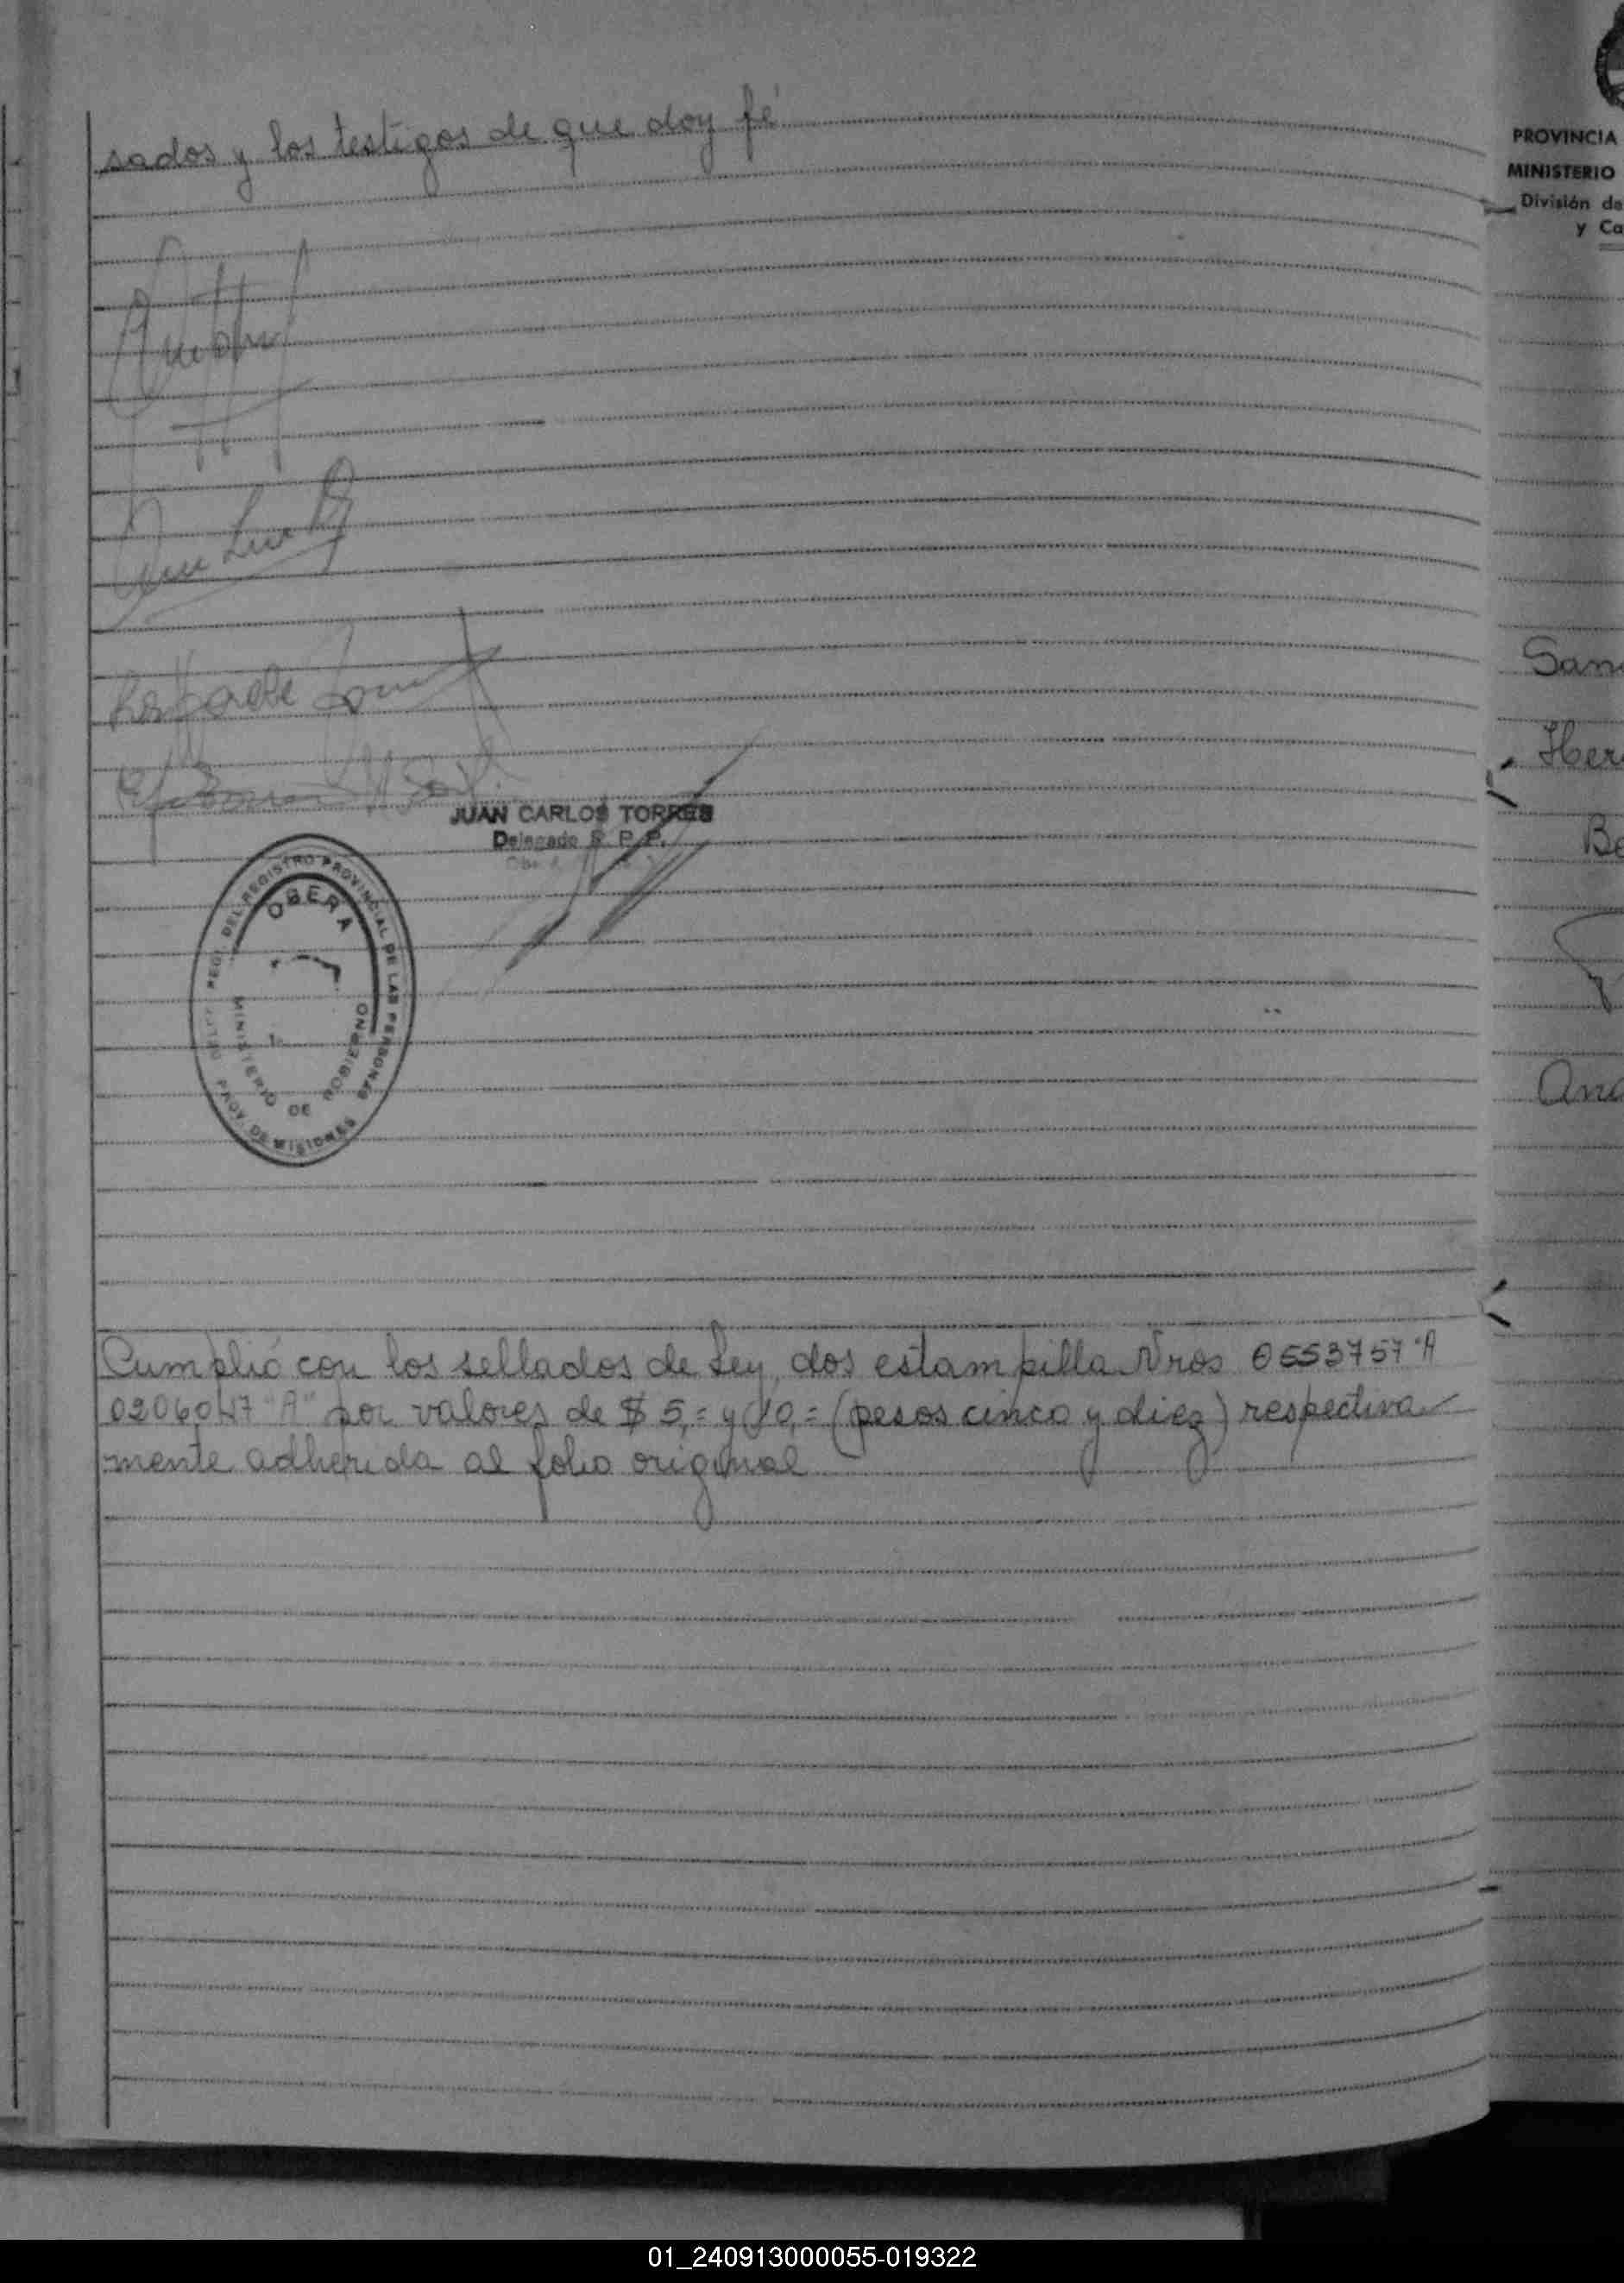 sados y los testigos de que doy fé
JUAN CARLOS TORRES
Delegado R. P. P.
DEL REGISTRO PROVINCIAL DE LAS PERSONAS
OBERA
MINISTERIO DE GOBIERNO
PROV. DE MISIONES
Cumplió con los sellados de Ley, dos estampilla Nros 0553757 "A
0206047 "A" por valores de $ 5,= y 10,= (pesos cinco y diez) respectiva
mente adherida al folio original
PROVINCIA
MINISTERIO
División de
y Ca
San
Her
Be
Ana
01_240913000055-019322